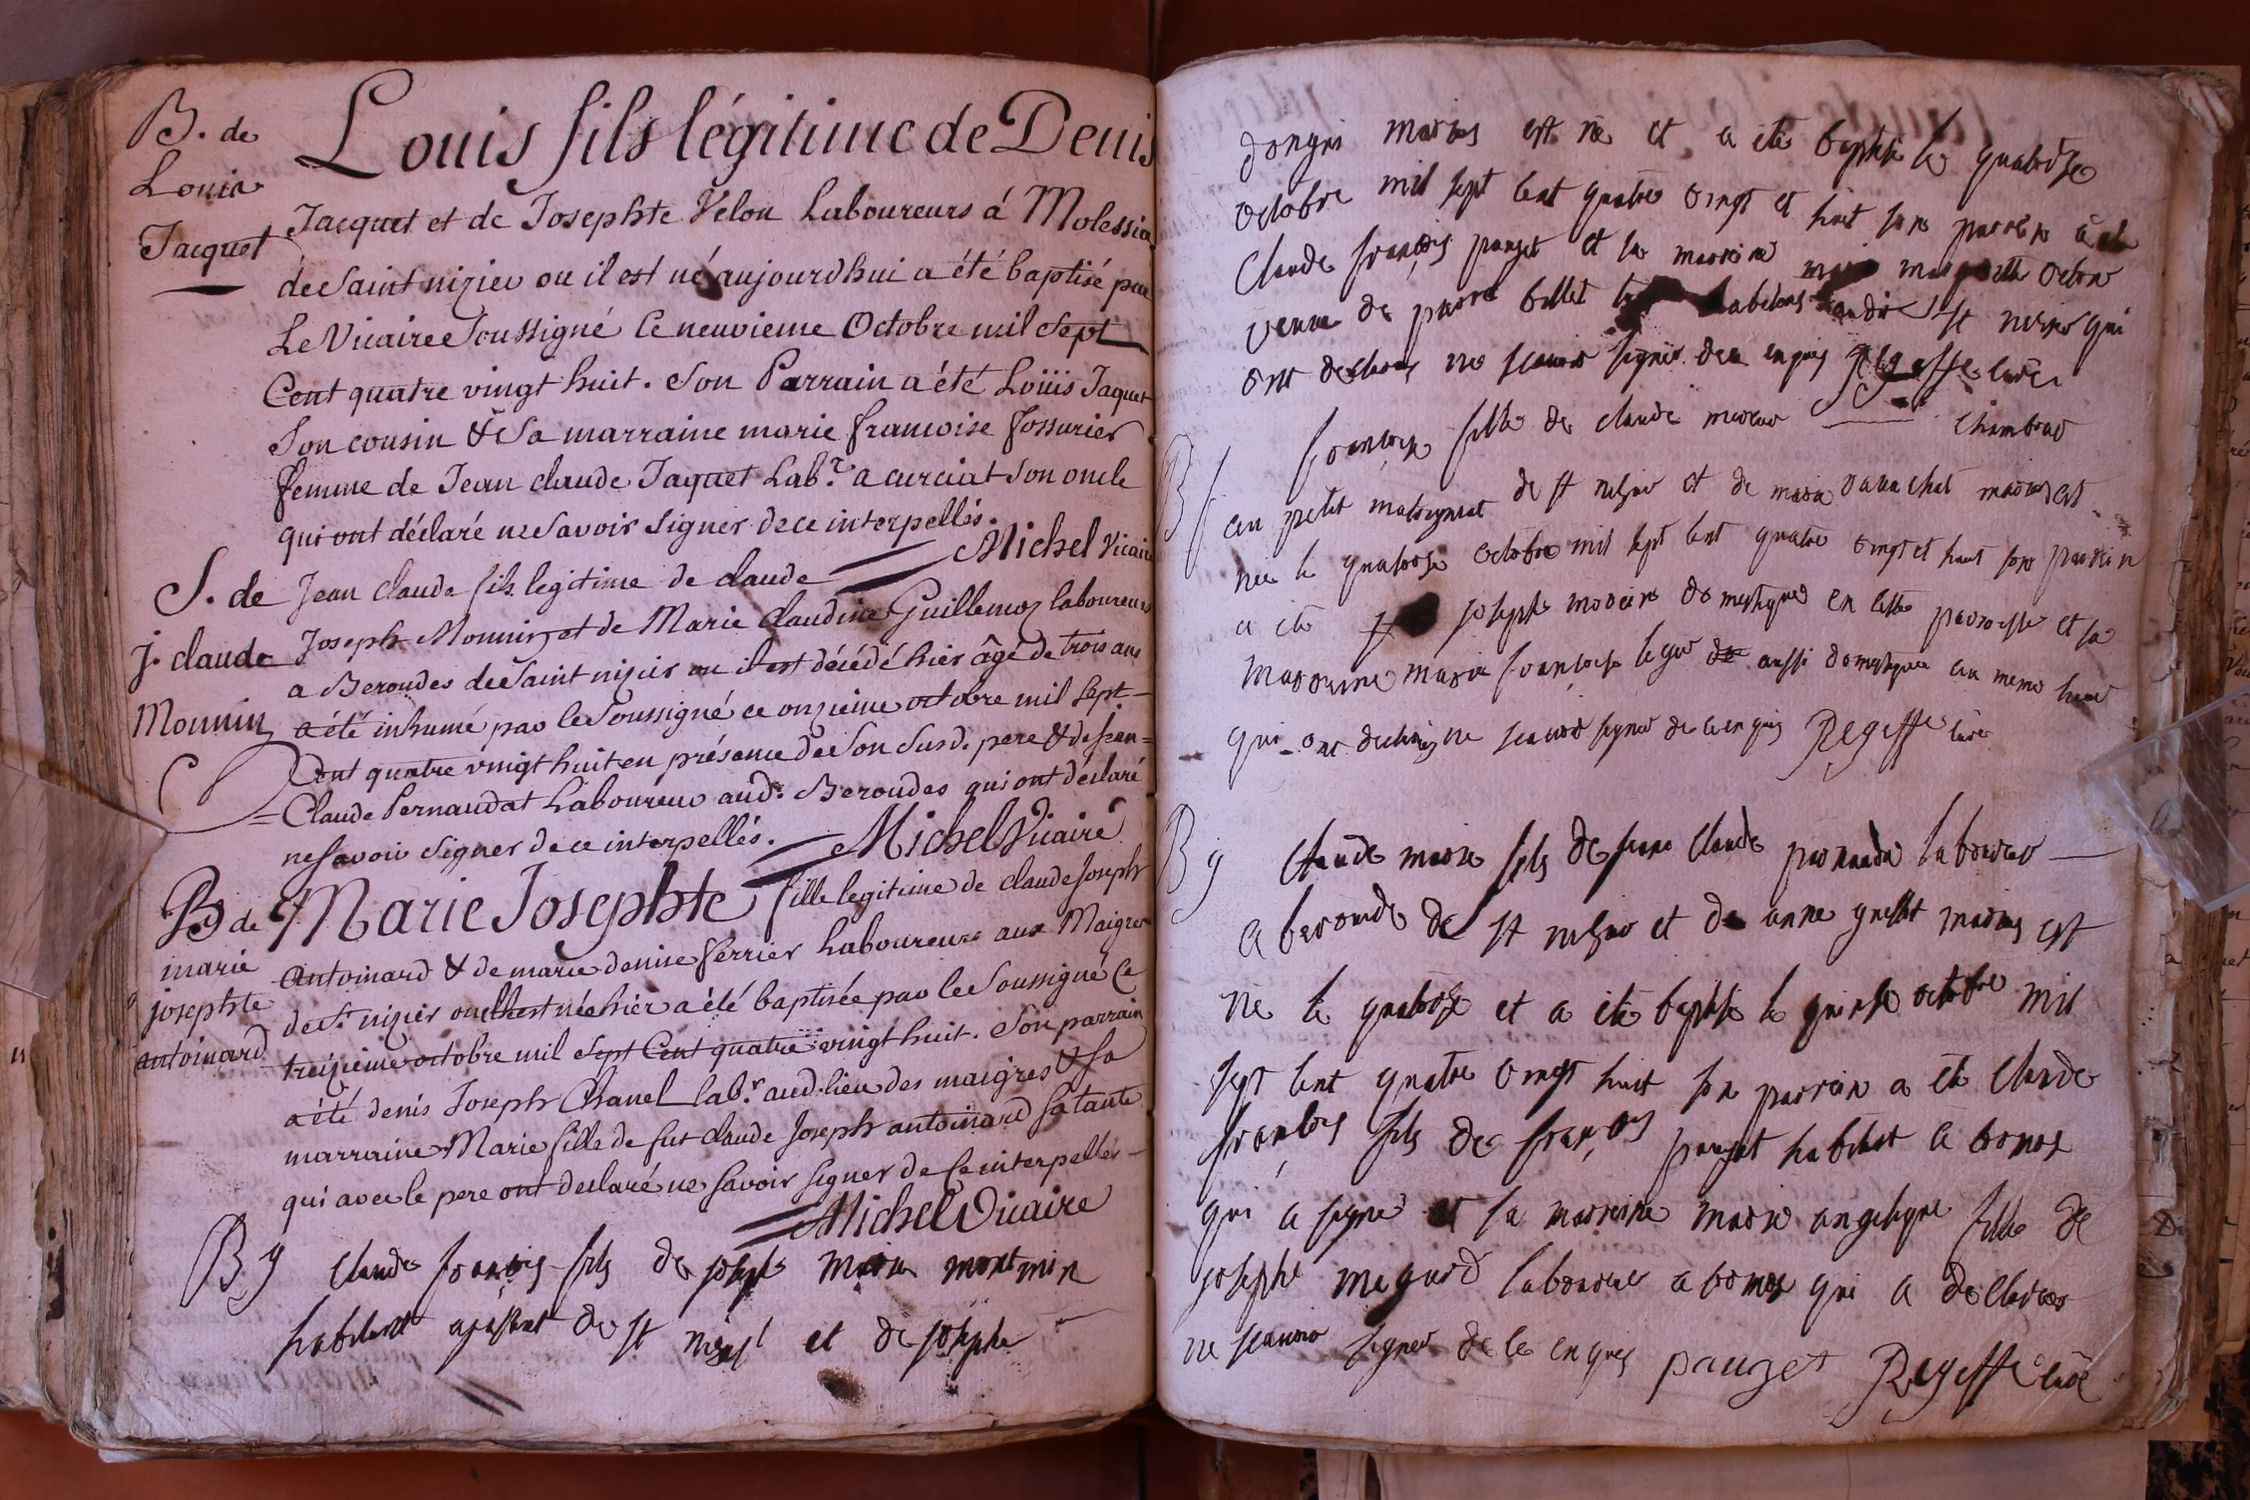 B. de
Louis
Jacquet
Louis fils légitime de Denis
Jacquet et de Josephte Velon Laboureurs á Molessia
de Saint nizier ou il est né aujourdhui a été baptisé par
Le Vicaire Soussigné Ce neuvieme Octobre mil Sept
Cent quatre vingt huit. Son Parrain a été Loüis Jaquet
Son cousin & Sa marraine marie francoise fossurier
femme de Jean claude Jaquet Lab.r a curciat Son oncle
qui ont déclaré ne Savoir Signer de ce interpellés.
Michel Vicaire
S. de
j. claude
Monnin
Jean Claude fils legitime de claude
Joseph Monnin et de Marie Claudine Guillemoz laboureurs
a Beroudes de Saint nizier ou il est décédé hier âgé de trois ans
a été inhumé par le Soussigné ce onzieme octobre mil Sept
Cent quatre vingt huit en présence de Son Susd. pere & de Jean=
=Claude Pernaudat Laboureur aud. Beroudes qui ont déclaré
ne Savoir Signer de ce interpellés.
Michel Vicaire
B de
marie
josephte
antoinard
Marie Josephte fille legitime de claude Joseph
Antoinard & de marie denise ferrier Laboureurs aux Maigres
de St. nizier ou elle est née hier a été baptisée par le Soussigné Ce
treizieme octobre mil Sept Cent quatre vingt huit. Son parrain
a été denis Joseph Chanel lab.r aud. lieu des maigres & Sa
marraine Marie fille de fut claude Joseph antoinard Sa tante
qui avec le pere ont declaré ne Savoir Signer de Ce interpellés
Michel Vicaire
B g
claude françois fils de joseph marie montmin
habitant de st et de josephe
mariés est né et a eté baptisé le quatorze
octobre mil sept cent quatre vingt et huit son parrein a eté
Claude françois pauget et sa marreine margueritte
veuve de billet habitans audit st nizier qui
ont declarés ne scavoir signer de ce enquis Regeffe curé
B f
françoise fille de claude
au petit de st nizier et de marie mariés est
née le quatorze octobre mil sept cent quatre vingt et huit son parrein
a eté joseph domestique en cette parroisse et sa
marreine marie françoise aussi domestique au meme lieu
qui ont declarés ne scavoir signer de ce enquis Regeffe curé
B g
Claude marie fils de jean claude laboureur
a beroude de st nizier et de anne mariés est
né le quatorze et a eté baptisé le quinze octobre mil
sept cent quatre vingt huit son parrein a eté claude
françois fils de françois pauget habitant a
qui a signé et sa marreine marie angelique fille de
josephe laboureur a qui a declarée
ne scavoir signer de ce enquis pauget Regeffe curé